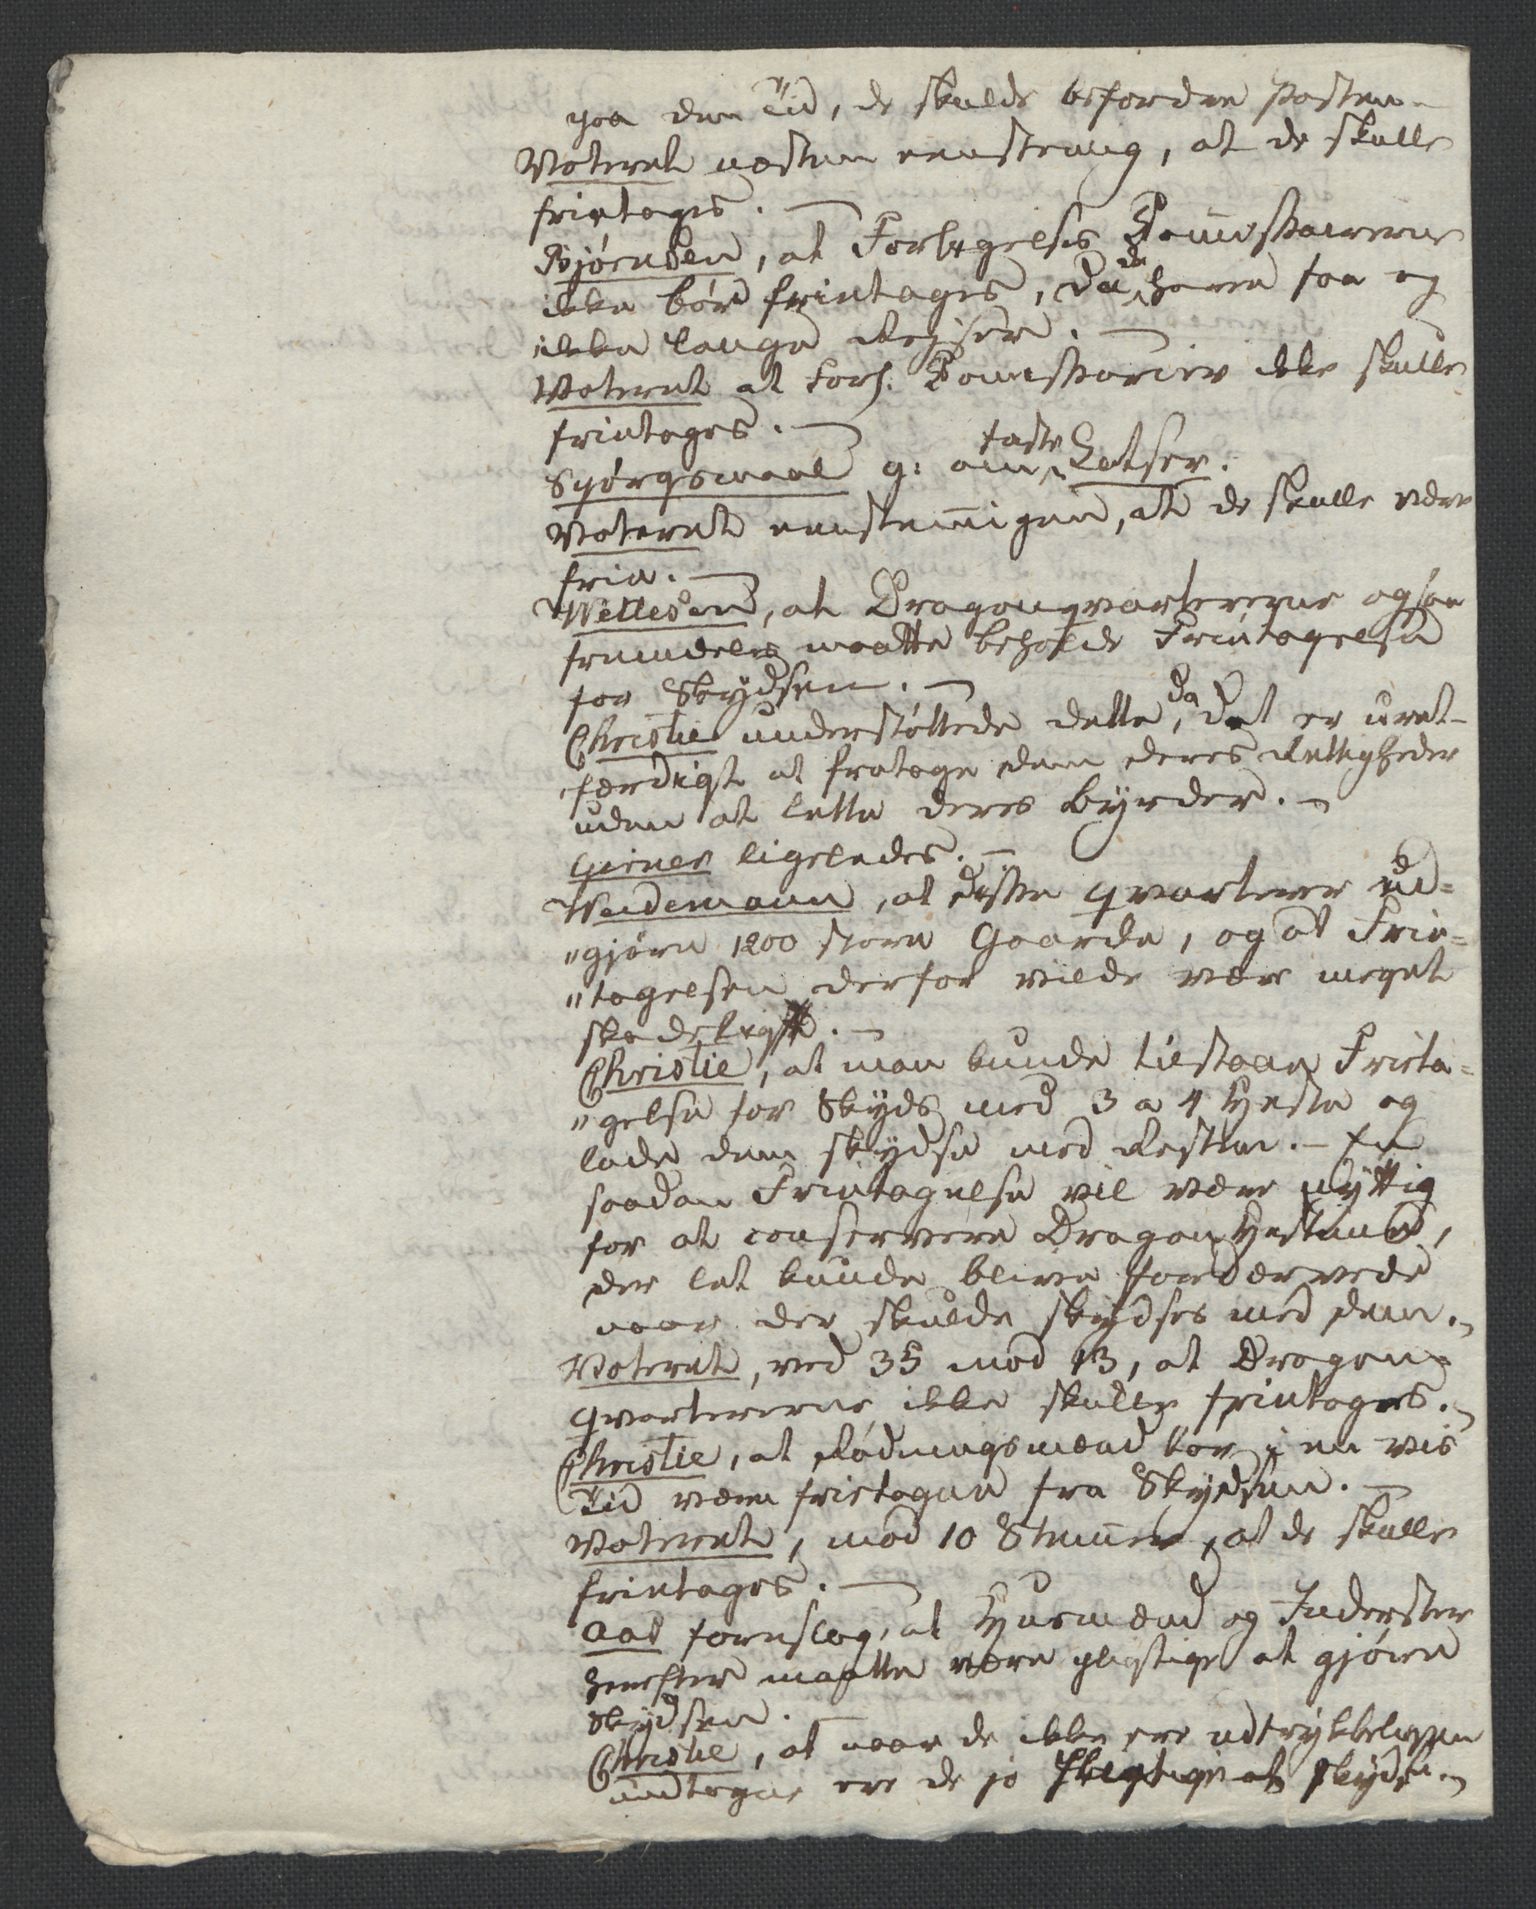 paa den Tid, de skulde befordre Posten.
Voteret næsten eenstemig, at de skulle
frietages. —
Bjørnsen, at Forligelses Com̄issairerne
ikke bør frietages, da de have saa og
ikke lange Rejser. —
Voteret at Forl. Comissarier ikke skulle
frietages. —
Spørgsmaal g: om faste Lotser.
Voteret eenstem̄igen, at de skulle være
frie. —
Wellesen, at Dragonqvartererne ogsaa
fremdeles maatte beholde Frietagelse
for Skydsen. —
Christie understøttede dette, da det er uret-
færdigt at fratage dem deres Rettigheder
uden at lette deres Byrder. —
ligeledes. —
Weidemann, at disse qvarterer ud=
"gjøre 1200 store Gaarde, og at Frie=
"tagelsen derfor vilde være meget
skadeligt. —
Christie, at man kunde tilstaae Frieta=
"gelse for Skyds med 3 a 4 Heste og
lade dem skydse med Resten. — En
saadan Frietagelse vil være nyttig
for at conservere Dragon Hestene,
der let kunde blive fordærvede
naar der skulde skydses med dem. —
Voteret, ved 35 mod 13, at Dragon=
qvartererne ikke skulle frietages. —
Christie, at Rødningsmænd bør i en vis
Tid være frietagen fra Skydsen. —
Voteret, mod 10 Stem̄er, at de skulle
frietages. —
Aas foreslog, at Husmænd og Inderster
herefter maatte være pligtige at gjøre
Skydsen. —
Christie, at naar de ikke ere udtrykkeligen
undtagne ere de jo pligtige at skydse. —